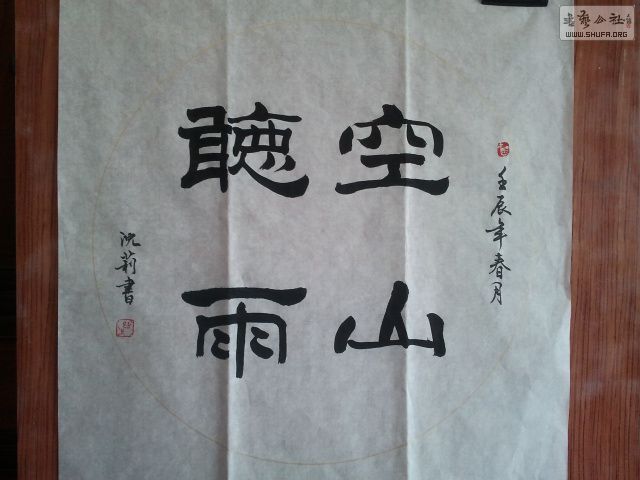 壬辰年春月
空山
聽雨
沈莉書
書藝公社
WWW.SHUFA.ORG